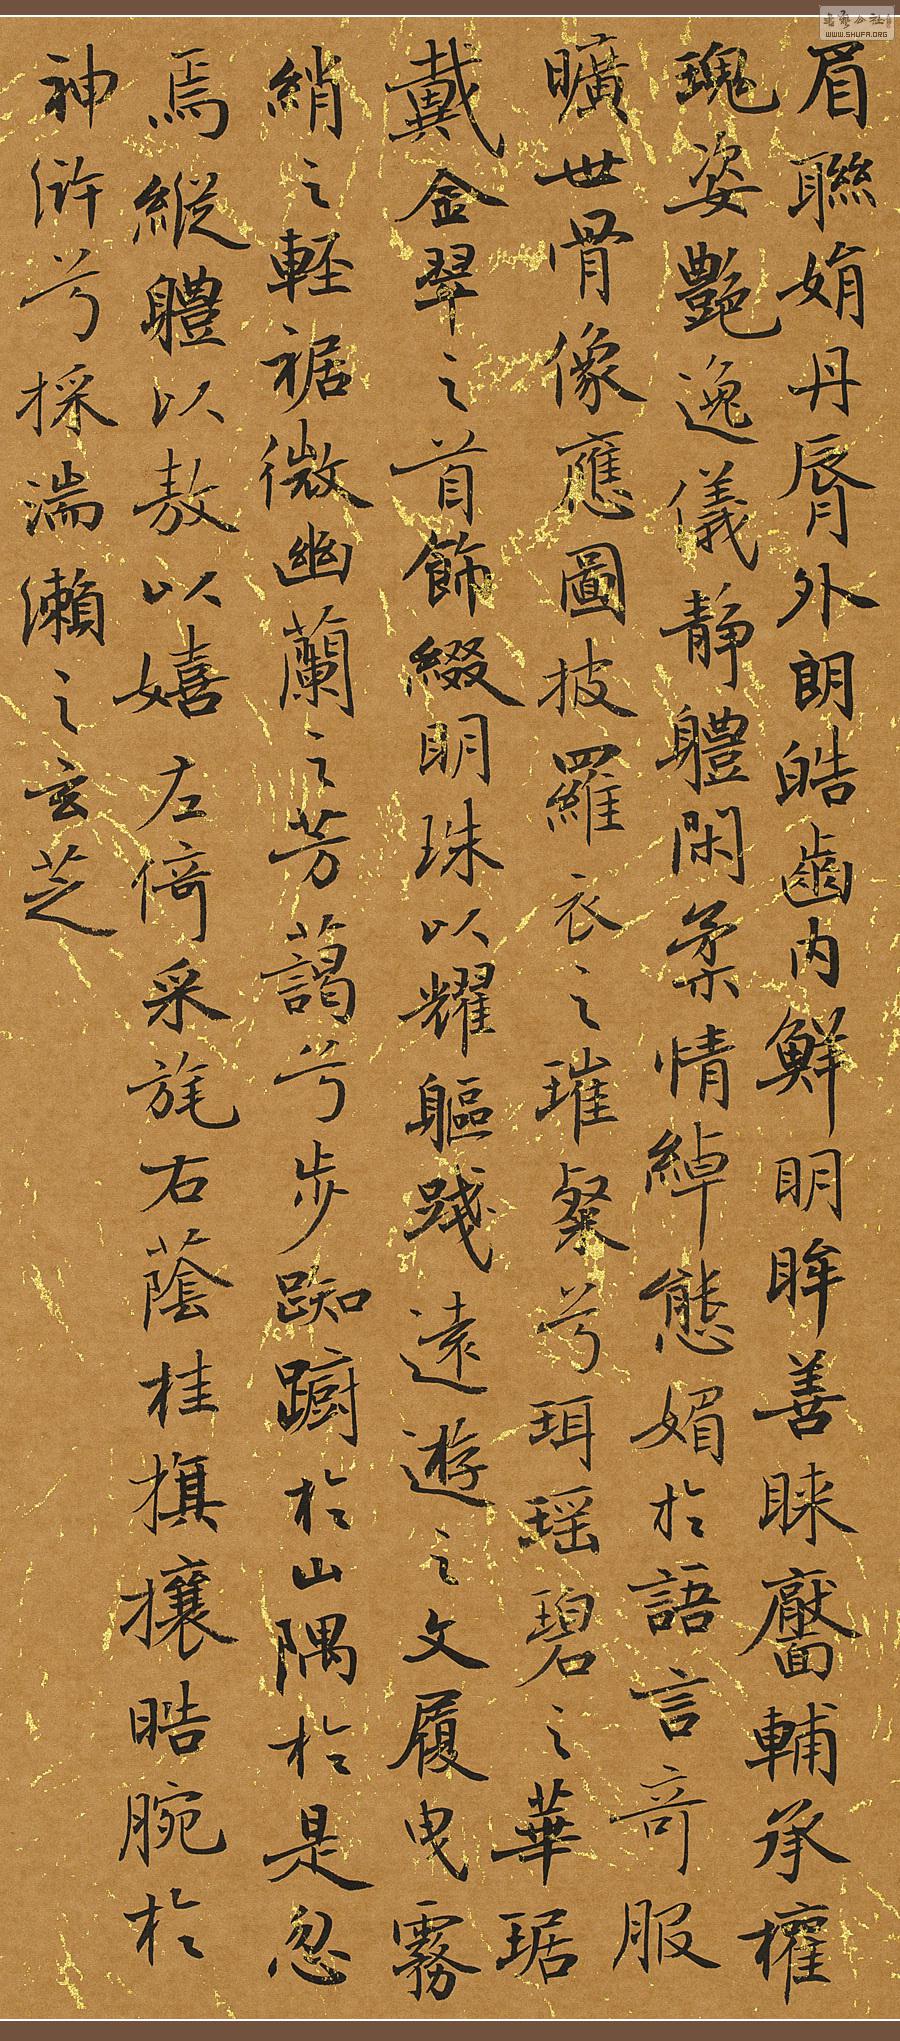 眉聯娟丹脣外朗皓齒內鮮明眸善睞靨輔承權
瑰姿艷逸儀靜體閑柔情綽態媚於語言奇服
曠世骨像應圖披羅衣之璀粲兮珥瑶碧之華琚
戴金翠之首飾綴明珠以耀軀踐遠遊之文履曳霧
綃之輕裾微幽蘭之芳藹兮步踟躕於山隅於是忽
焉縱體以敖以嬉左倚采旄右蔭桂旗攘皓腕於
神滸兮採湍瀨之玄芝
WWW.SHUFA.ORG